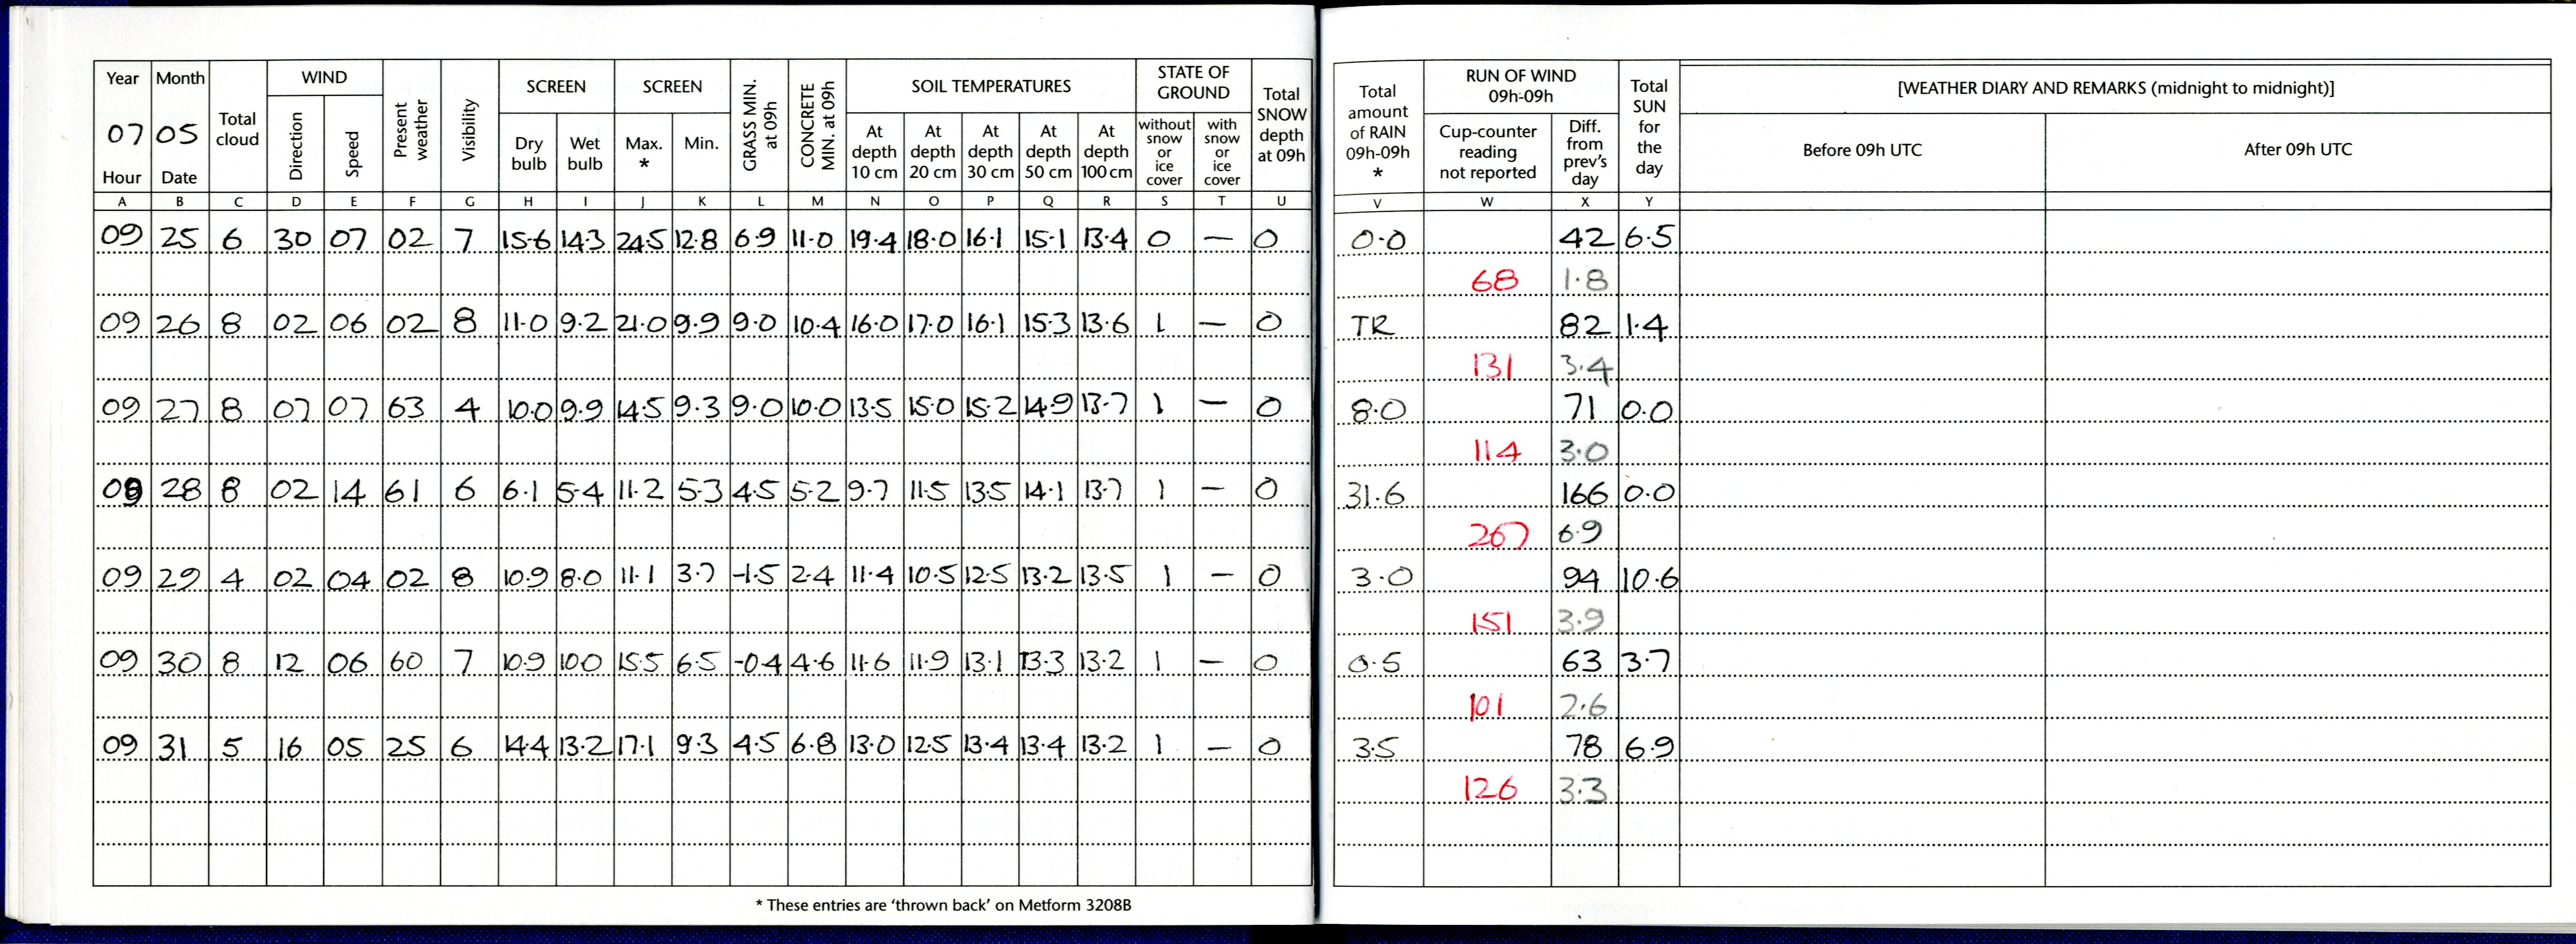 Year Month Total cloud WIND Present weather Visibility SCREEN SCREEN GRASS MIN. at 09h CONCRETE MIN. at 09h SOIL TEMPERATURES STATE OF GROUND Total SNOW depth at 09h Total amount of RAIN 09h-09h * RUN OF WIND 09h-09h Total SUN for the day [WEATHER DIARY AND REMARKS (midnight to midnight)]
07 05 Direction Speed Dry bulb Wet bulb Max. * Min. At depth 10 cm At depth 20 cm At depth 30 cm At depth 50 cm At depth 100 cm without snow or ice cover with snow or ice cover Cup-counter reading not reported Diff. from prev's day Before 09h UTC After 09h UTC
Hour Date
A B C D E F G H I J K L M N O P Q R S T U V W X Y
09 25 6 30 07 02 7 15.6 14.3 24.5 12.8 6.9 11.0 19.4 18.0 16.1 15.1 13.4 0 — 0 0.0 42 6.5
68 1.8
09 26 8 02 06 02 8 11.0 9.2 21.0 9.9 9.0 10.4 16.0 17.0 16.1 15.3 13.6 1 — 0 TR 82 1.4
131 3.4
09 27 8 07 07 63 4 10.0 9.9 14.5 9.3 9.0 10.0 13.5 15.0 15.2 14.9 13.7 1 — 0 8.0 71 0.0
114 3.0
09 28 8 02 14 61 6 6.1 5.4 11.2 5.3 4.5 5.2 9.7 11.5 13.5 14.1 13.7 1 — 0 31.6 166 0.0
267 6.9
09 29 4 02 04 02 8 10.9 8.0 11.1 3.7 -1.5 2.4 11.4 10.5 12.5 13.2 13.5 1 — 0 3.0 94 10.6
151 3.9
09 30 8 12 06 60 7 10.9 10.0 15.5 6.5 -0.4 4.6 11.6 11.9 13.1 13.3 13.2 1 — 0 0.5 63 3.7
101 2.6
09 31 5 16 05 25 6 14.4 13.2 17.1 9.3 4.5 6.8 13.0 12.5 13.4 13.4 13.2 1 — 0 3.5 78 6.9
126 3.3
* These entries are 'thrown back' on Metform 3208B